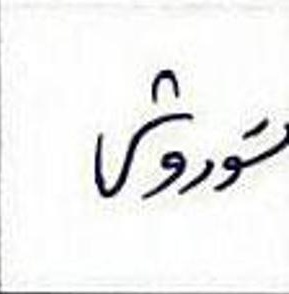 کوروش